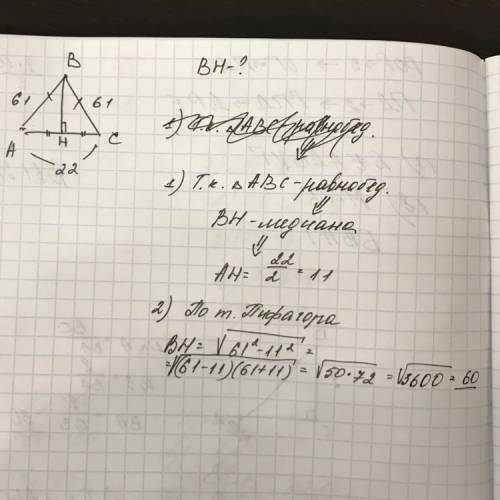 B
61
61
A
H
C
22
BH-?
1) Т.к. △ABC-равнобед.
⇓
1) Т.к. △ABC-равнобед.
⇓
BH-медиана
⇓
AH= 22/2 = 11
2) По т. Пифагора
BH= √(61²-11²) =
=√((61-11)(61+11)) = √(50·72) = √3600 = 60